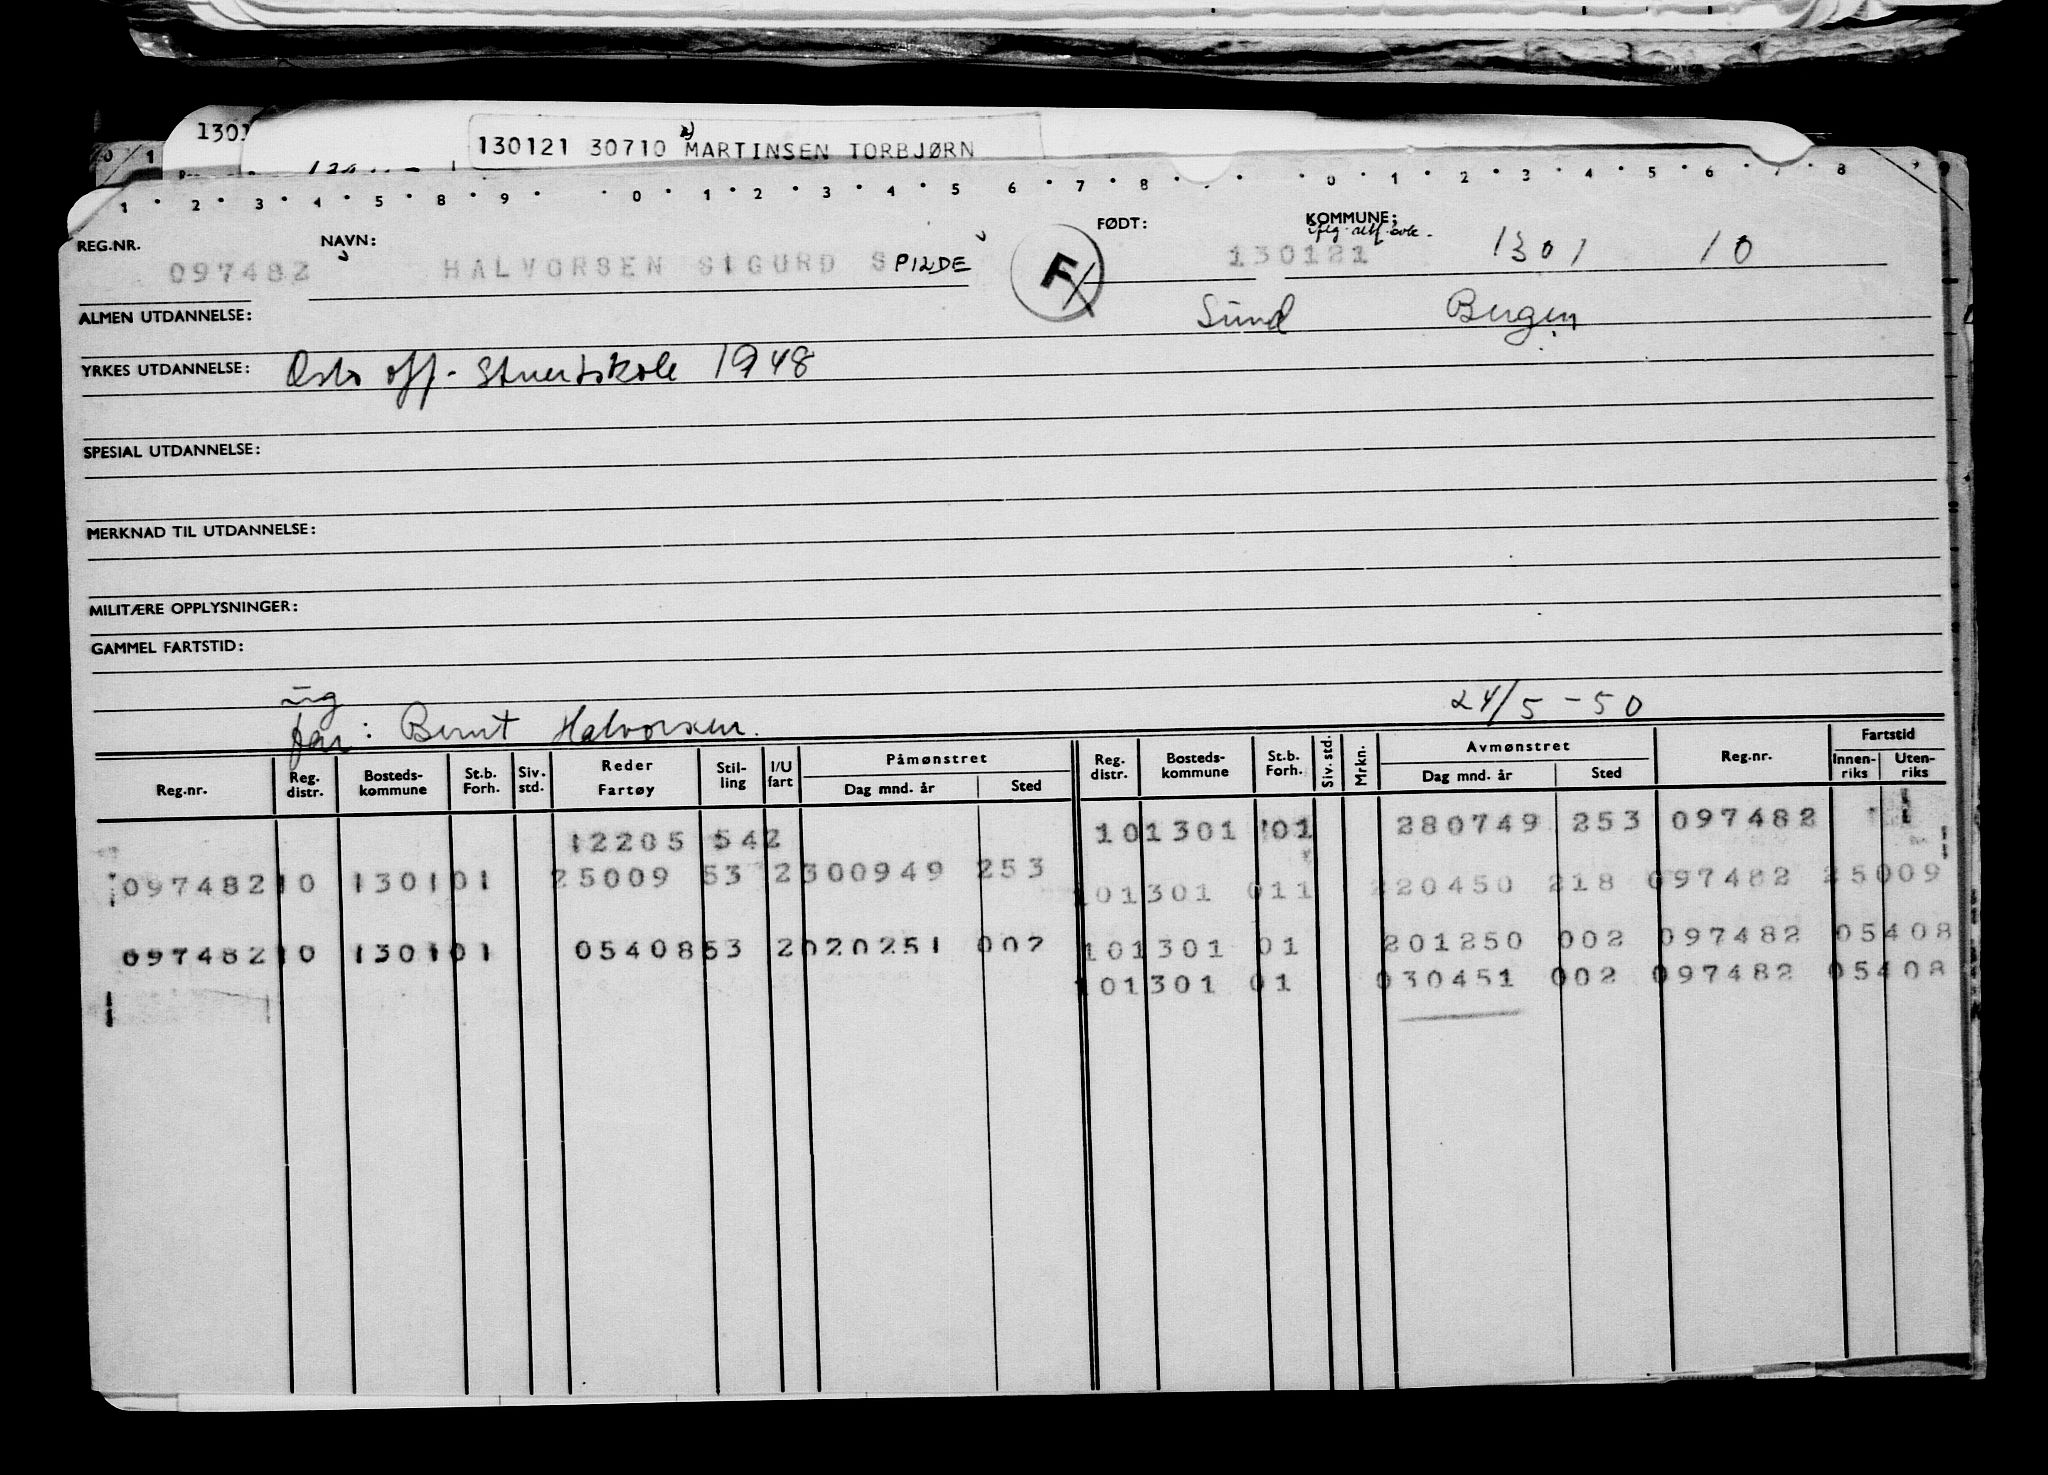 130121 30710 MARTINSEN TORBJØRN
1 2 3 4 5 8 9 0 1 2 3 4 5 6 7 8 0 1 2 3 4 5 6 7 8
REG.NR. NAVN: FØDT: KOMMUNE:
097482 HALVORSEN SIGURD S PILDE F 130121 1301 10
ALMEN UTDANNELSE: Sund Bergen
YRKES UTDANNELSE: Oslo off. Stuertskole 1948
SPESIAL UTDANNELSE:
MERKNAD TIL UTDANNELSE:
MILITÆRE OPPLYSNINGER:
GAMMEL FARTSTID:
ug
far: Bernt Halvorsen. 24/5-50
Reg.nr. Reg. distr. Bosteds- kommune St.b. Forh. Siv. std. Reder Fartøy Stil- ling I/U fart Påmønstret Dag mnd. år Sted Reg. distr. Bosteds- kommune St.b. Forh. Siv. std. Mrkn. Avmønstret Dag mnd. år Sted Reg.nr. Fartstid Innen- riks Uten- riks
12205 542 101301 01 280749 253 097482
09748210 130101 25009 53 2300949 253 101301 011 220450 218 097482 25009
09748210 130101 0540853 2020251 002 101301 01 201250 002 097482 05408
101301 01 030451 002 097482 05408